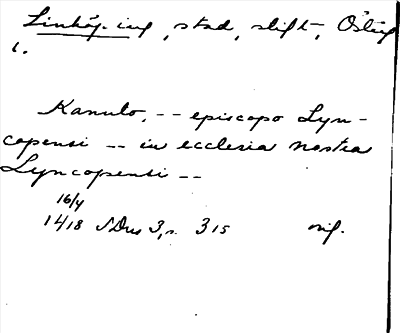 Linköping, stad, stift, Östg
l.
Kanuto, -- episcopo Lyn-
copensi -- in ecclesia nostra
Lyncopensi --
16/4
1418 SDns 3, s. 315 orig.